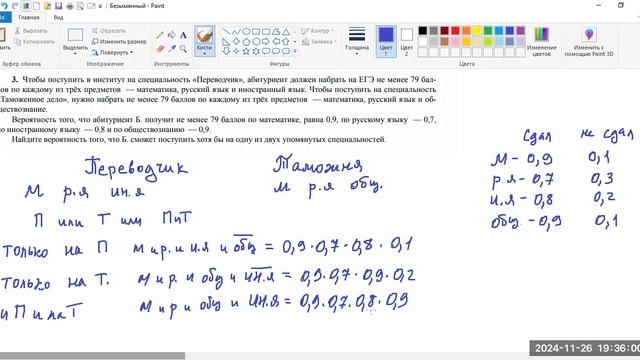 Безымянный - Paint
Файл Главная Вид
Вставить
Выделить
Обрезать
Изменить размер
Повернуть
Кисти
Фигуры
Контур
Заливка
Толщина
Цвет 1
Цвет 2
Изменение цветов
Изменить с помощью Paint 3D
Буфер обмена Изображение Инструменты Фигуры Цвета
3. Чтобы поступить в институт на специальность «Переводчик», абитуриент должен набрать на ЕГЭ не менее 79 бал-
лов по каждому из трёх предметов — математика, русский язык и иностранный язык. Чтобы поступить на специальность
«Таможенное дело», нужно набрать не менее 79 баллов по каждому из трёх предметов — математика, русский язык и об-
ществознание.
Вероятность того, что абитуриент Б. получит не менее 79 баллов по математике, равна 0,9, по русскому языку — 0,7,
по иностранному языку — 0,8 и по обществознанию — 0,9.
Найдите вероятность того, что Б. сможет поступить хотя бы на одну из двух упомянутых специальностей.
Переводчик Таможня
М р.я ин.я М р.я общ.
П или Т или ПиТ
только на П м и р. и и.я и общ = 0,9 · 0,7 · 0,8 · 0,1
только на Т. м и р. и общ и ин.я = 0,9 · 0,7 · 0,9 · 0,2
и П и на Т м и р и общ и ин.я = 0,9 · 0,7 · 0,8 · 0,9
сдал не сдал
М – 0,9 0,1
р.я – 0,7 0,3
и.я – 0,8 0,2
общ. – 0,9 0,1
2024-11-26 19:36:00